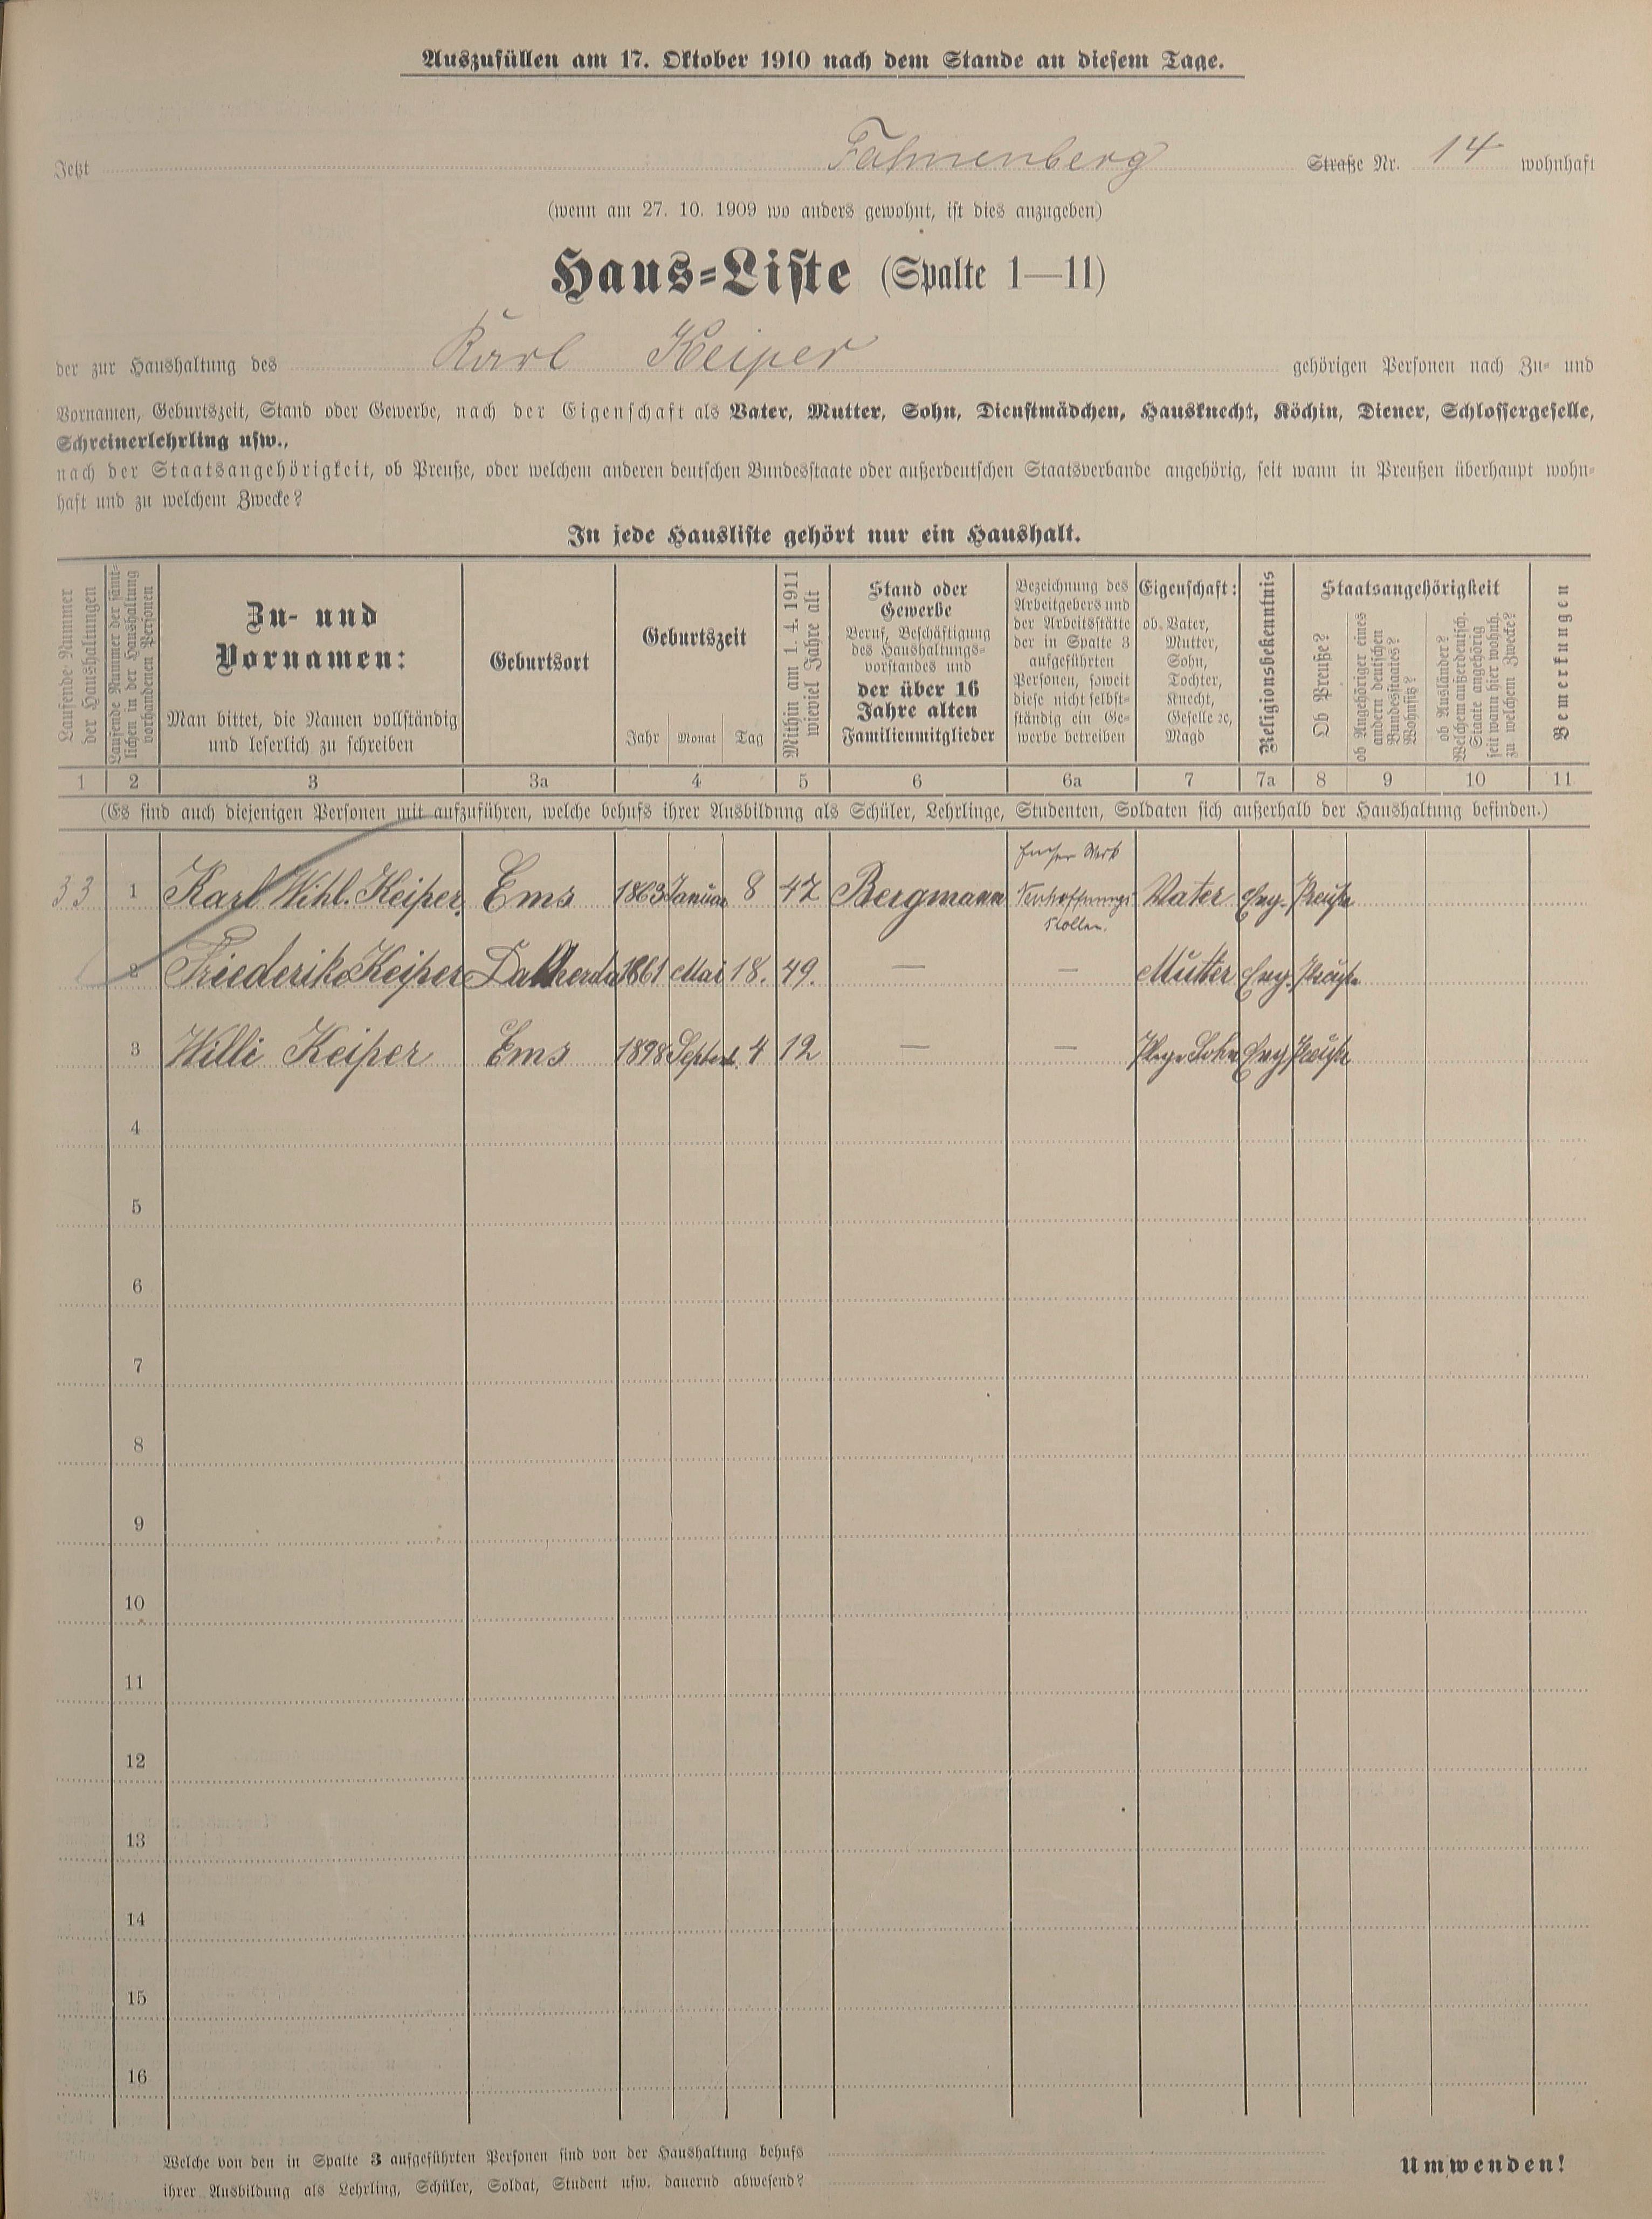 Auszufüllen am 17. Oktober 1910 nach dem Stande an diesem Tage.
Jetzt Fahnenberg Straße Nr. 14 wohnhaft
(wenn am 27. 10. 1909 wo anders gewohnt, ist dies anzugeben)
Haus-Liste (Spalte 1—11)
der zur Haushaltung des Karl Keiper gehörigen Personen nach Zu- und
Vornamen, Geburtszeit, Stand oder Gewerbe, nach der Eigenschaft als Vater, Mutter, Sohn, Dienstmädchen, Hausknecht, Köchin, Diener, Schlossergeselle,
Schreinerlehrling usw.,
nach der Staatsangehörigkeit, ob Preuße, oder welchem anderen deutschen Bundesstaate oder außerdeutschen Staatsverbande angehörig, seit wann in Preußen überhaupt wohn-
haft und zu welchem Zwecke?
In jede Hausliste gehört nur ein Haushalt.
Laufende Nummer
der Haushaltungen
Laufende Nummer der sämt-
lichen in der Haushaltung
vorhandenen Personen
Zu- und
Vornamen:
Man bittet, die Namen vollständig
und leserlich zu schreiben
Geburtsort
Geburtszeit
Jahr Monat Tag
Mithin am 1. 4. 1911
wieviel Jahre alt
Stand oder
Gewerbe
Beruf, Beschäftigung
des Haushaltungs-
vorstandes und
der über 16
Jahre alten
Familienmitglieder
Bezeichnung des
Arbeitgebers und
der Arbeitsstätte
der in Spalte 3
aufgeführten
Personen, soweit
diese nicht selbst-
ständig ein Ge-
werbe betreiben
Eigenschaft:
ob Vater,
Mutter,
Sohn,
Tochter,
Knecht,
Geselle ꝛc,
Magd
Religionsbekenntnis
Staatsangehörigkeit
Ob Preuße?
ob Angehöriger eines
andern deutschen
Bundesstaates?
Wohnsitz?
ob Ausländer?
Welchem außerdeutsch.
Staate angehörig
seit wann hier wohnh.
zu welchem Zwecke?
Bemerkungen
1 2 3 3a 4 5 6 6a 7 7a 8 9 10 11
(Es sind auch diejenigen Personen mit aufzuführen, welche behufs ihrer Ausbildung als Schüler, Lehrlinge, Studenten, Soldaten sich außerhalb der Haushaltung befinden.)
33 1 Karl Wilh. Keiper. Ems 1863 Januar 8 47 Bergmann Emser Werk Vater Evg. Preuße
Stollen.
2 Friederike Keiper 1861 Mai 18. 49. — — Mutter Evg. Preuße
3 Willi Keiper Ems 1898 Septemb. 4 12 — — Pflege Sohn Evg Preuße
4
5
6
7
8
9
10
11
12
13
14
15
16
Welche von den in Spalte 3 aufgeführten Personen sind von der Haushaltung behufs
ihrer Ausbildung als Lehrling, Schüler, Soldat, Student usw. dauernd abwesend?
Umwenden!